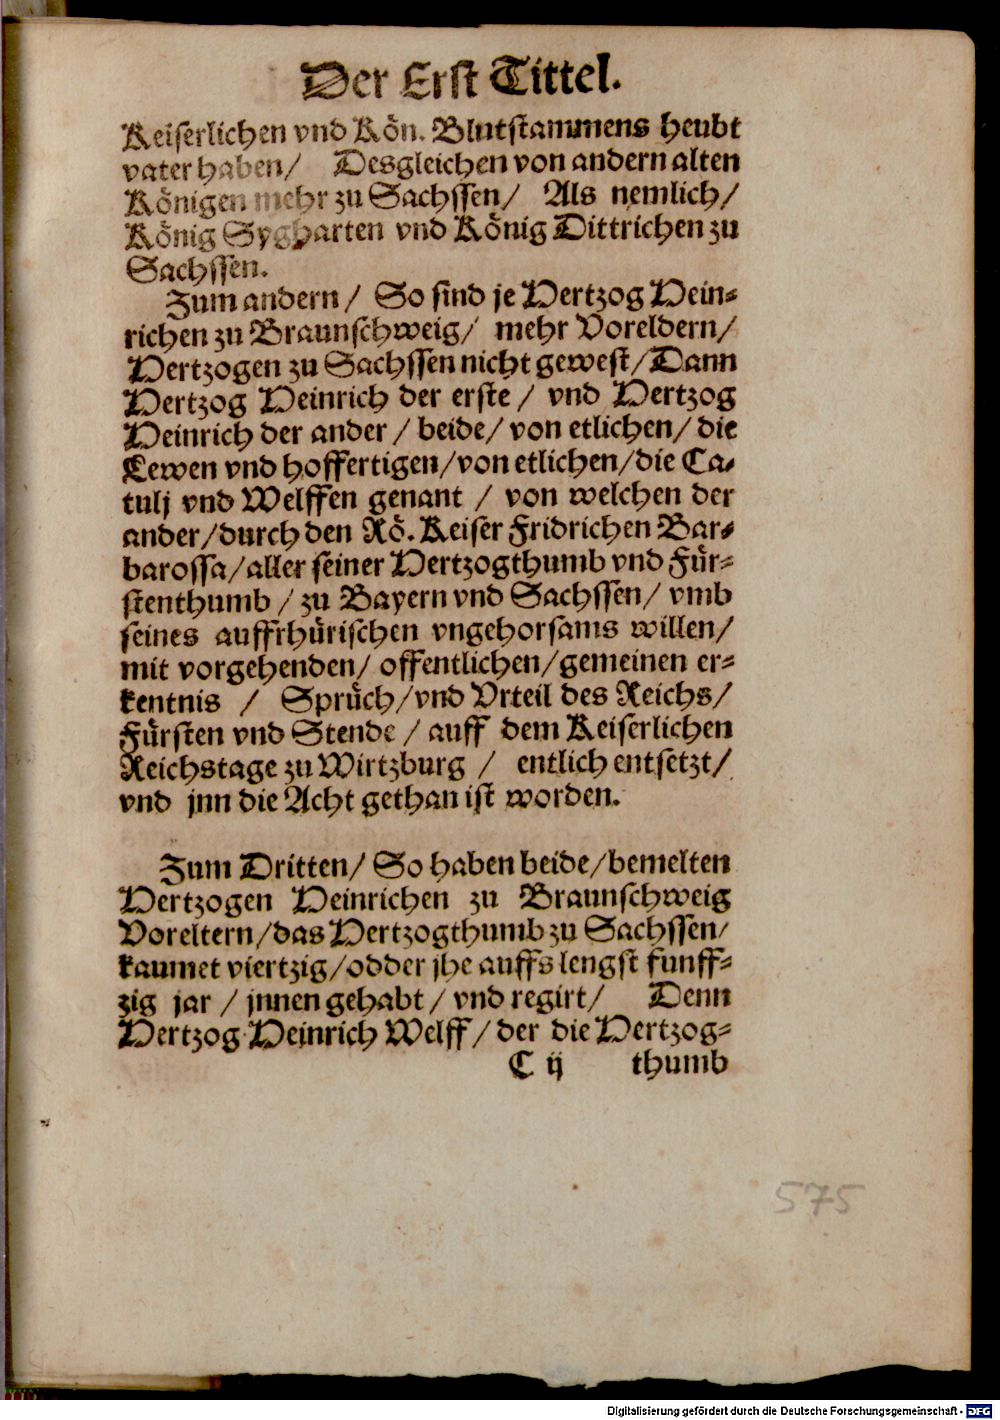 Der Erst Tittel.
Keiserlichen vnd Kön. Blutstammens heubt
vater haben/ Desgleichen von andern alten
Königen mehr zu Sachssen/ Als nemlich/
König Sygharten vnd König Dittrichen zu
Sachssen.
Zum andern/ So sind je Hertzog Hein-
richen zu Braunschweig/ mehr Voreldern/
Hertzogen zu Sachssen nicht gewest/ Dann
Hertzog Heinrich der erste/ vnd Hertzog
Heinrich der ander/ beide/ von etlichen/ die
Lewen vnd hoffertigen/ von etlichen/ die Ca-
tulj vnd Welffen genant/ von welchen der
ander/ durch den Rö. Keiser Fridrichen Bar-
barossa/ aller seiner Hertzogthumb vnd Für-
stenthumb/ zu Bayern vnd Sachssen/ vmb
seines auffrhürischen vngehorsams willen/
mit vorgehenden/ offentlichen/ gemeinen er-
kentnis/ Sprüch/ vnd Vrteil des Reichs/
Fürsten vnd Stende/ auff dem Keiserlichen
Reichstage zu Wirtzburg/ entlich entsetzt/
vnd jnn die Acht gethan ist worden.
Zum Dritten/ So haben beide/ bemelten
Hertzogen Heinrichen zu Braunschweig
Voreltern/ das Hertzogthumb zu Sachssen/
kaumet viertzig/ odder jhe auffs lengst funff-
zig jar/ jnnen gehabt/ vnd regirt/ Denn
Hertzog Heinrich Welff/ der die Hertzog-
C ij thumb
575
Digitalisierung gefördert durch die Deutsche Forschungsgemeinschaft - DFG